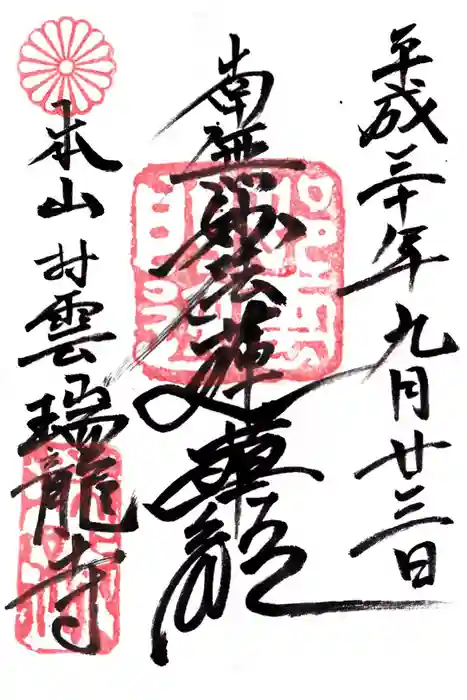 平成三十年九月廿三日
南無妙法蓮華経
本山村雲瑞龍寺